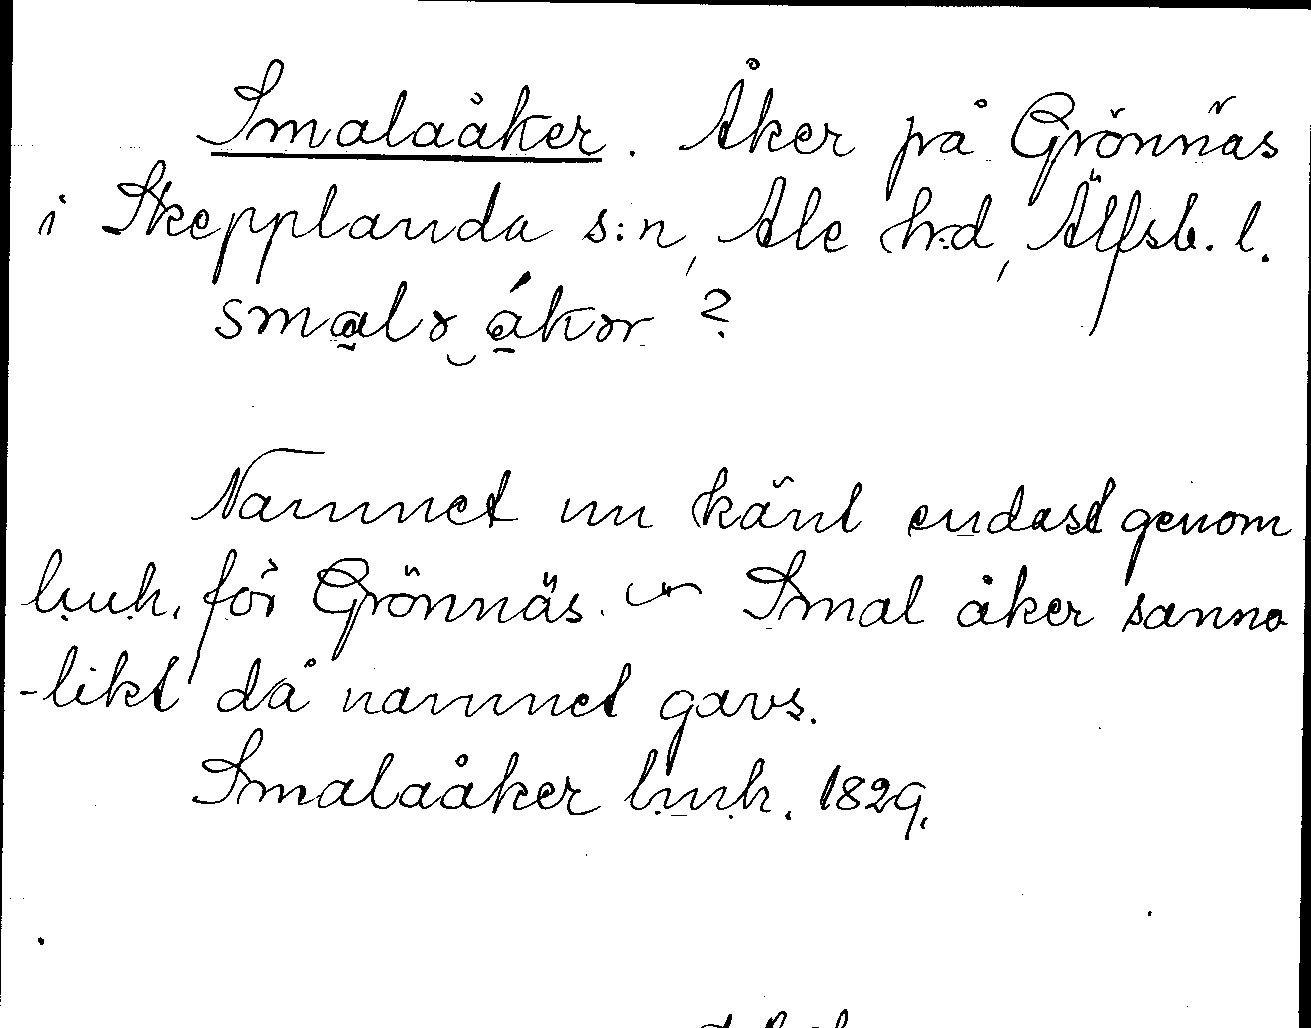 Smalaåker. Åker på Grönnäs
i Skepplanda s:n, Ale hd, Älfsb. l.
smalɤ‿ákɤr ?
Namnet nu känt endast genom
lmh. för Grönnäs. ~ Smal åker sanno
-likt då namnet gavs.
Smalaåker lmh. 1829.